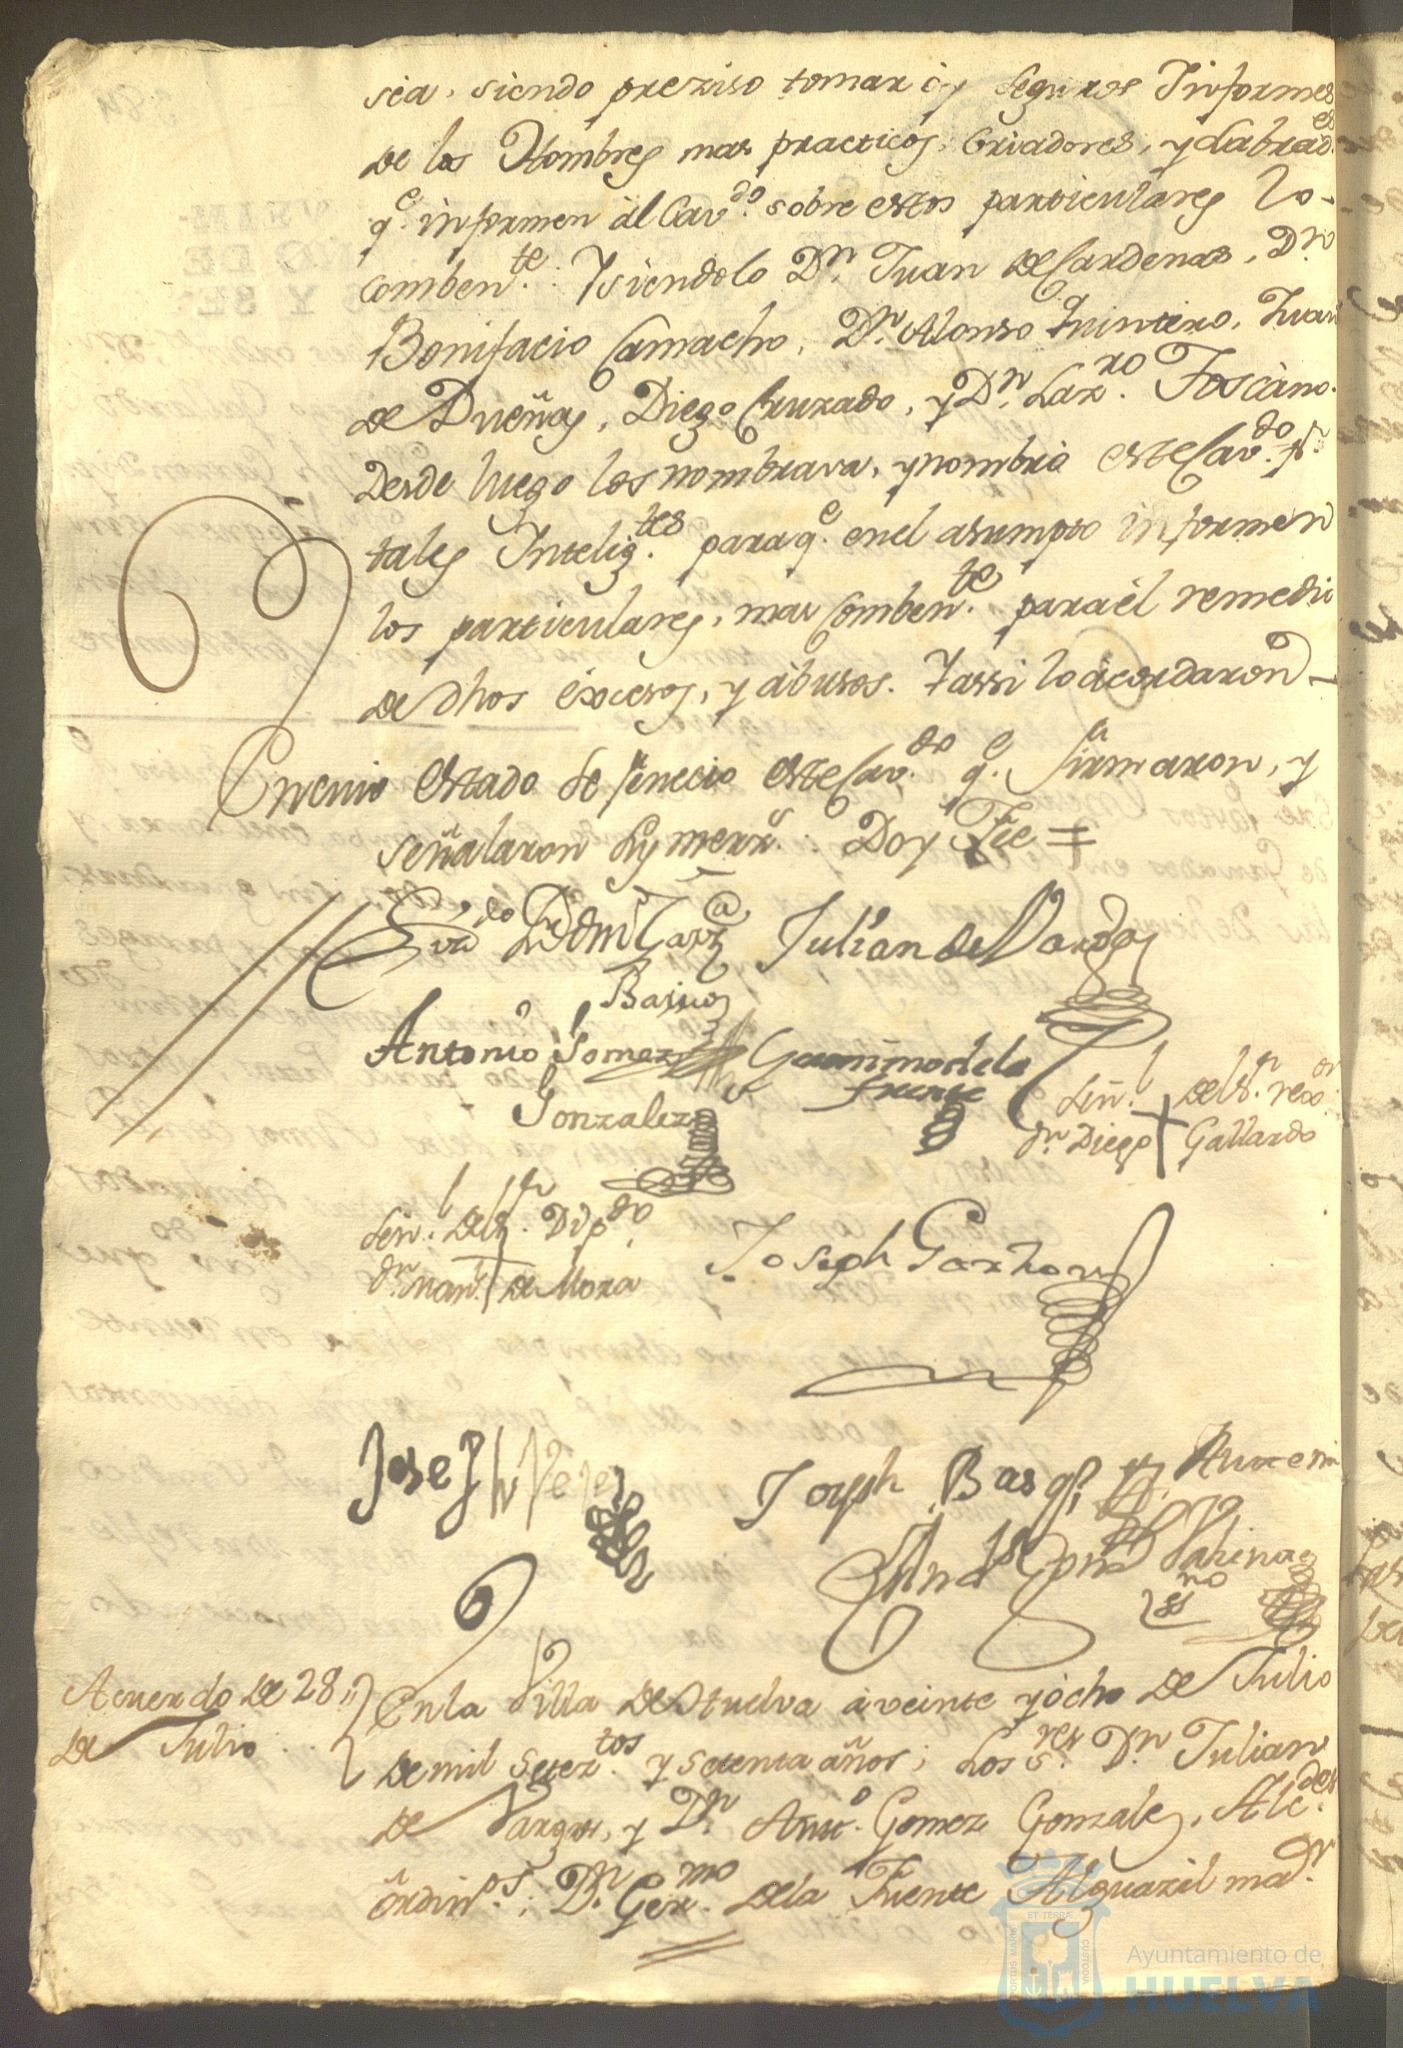 sea, siendo preziso tomar Seguros Informes
de los Hombres mas practicos, Criadores, y Labrad.es
q.e informen al Cav.do sobre estos particulares lo
comben.te: Y siendolo D.n Juan de Cardenas, D.n
Bonifacio Camacho, D.n Alonso Quintero, Juan
de Dueñas, Diego Cruzado, y D.n Laz.ro Toscano.
Desde luego los nombrava, y nombró este Cav.do p.r
tales Intelig.tes para q.e en el asumpto informen
los particulares, mas comben.te para el remedio
de dhos excesos, y abusos. Y assi lo acordaron
En cuio estado se fenecio este Cav.do q.e firmaron, y
señalaron sus merz.s: Doy Fee =
Julian de Vargas
Barios
Antonio Gomez
Gonzalez
Geronimo de la
Fuente
Señ.l del S.r rexo.or
d.n Diego Gallardo
Señ.l del S.r Dip.do
d.n Man.l de Mora
Joseph Garzon
Joseph Velez
Joseph Basq.z
Acuerdo de 28
de Julio
En la Villa de Huelva a veinte y ocho de Julio
de mil setez.tos y setenta años; Los S.res D.n Julian
de Vargas, y D.n Ant.o Gomez Gonzales, Alc.des
ordin.os; D.n Ger.mo de la Fuente Alguazil ma.or
PORTUS MARIS ET TERRÆ CUSTODIA
Ayuntamiento de
HUELVA